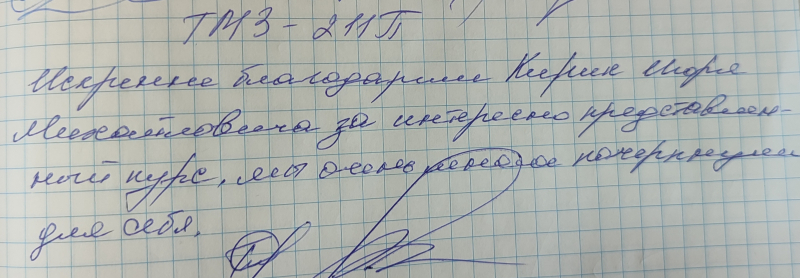 ТМЗ-211П
Искренне благодарим Кирик Игоря
Михайловича за интересно представлен-
ный курс, мы очень многое почеркнули
для себя.